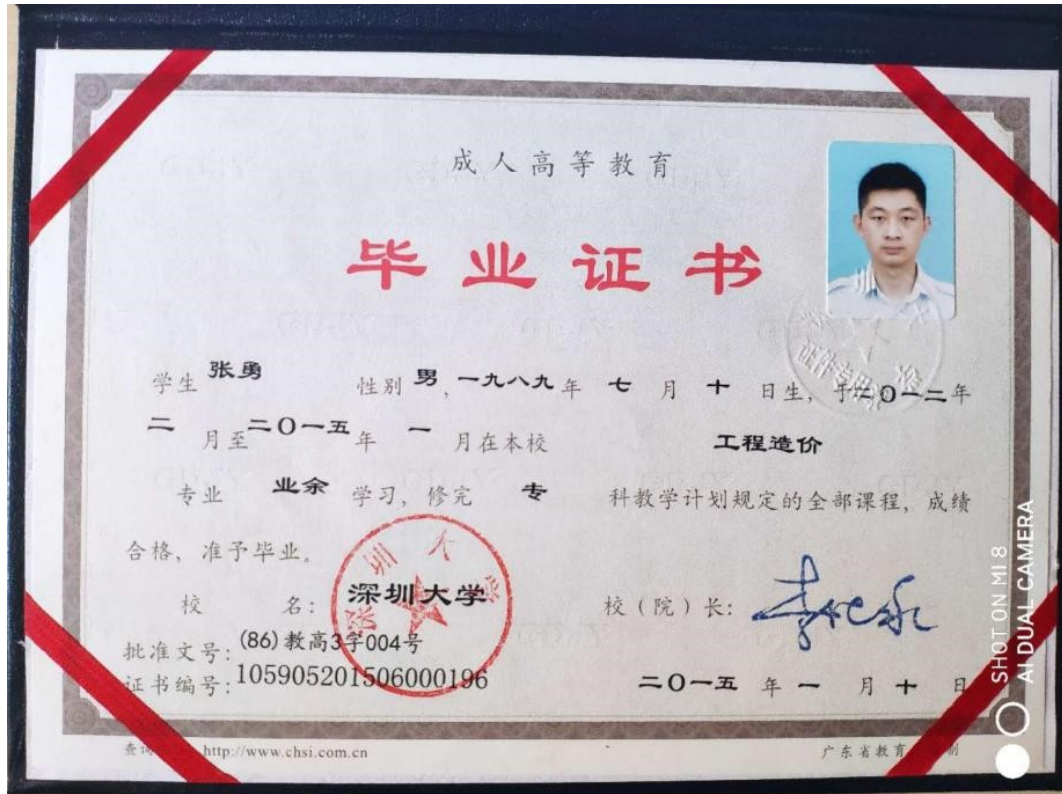 成人高等教育
毕业证书
学生 张勇 性别 男, 一九八九 年 七 月 十 日生, 于二〇一二年
二 月至 二〇一五 年 一 月在本校 工程造价
专业 业余 学习, 修完 专 科教学计划规定的全部课程, 成绩
合格, 准予毕业。
校 名: 深圳大学 校(院)长:
批准文号: (86)教高3字004号
证书编号: 105905201506000196 二〇一五 年 一 月 十 日
http://www.chsi.com.cn 广东省教育
深圳大学
证件专用章
SHOT ON MI 8
AI DUAL CAMERA